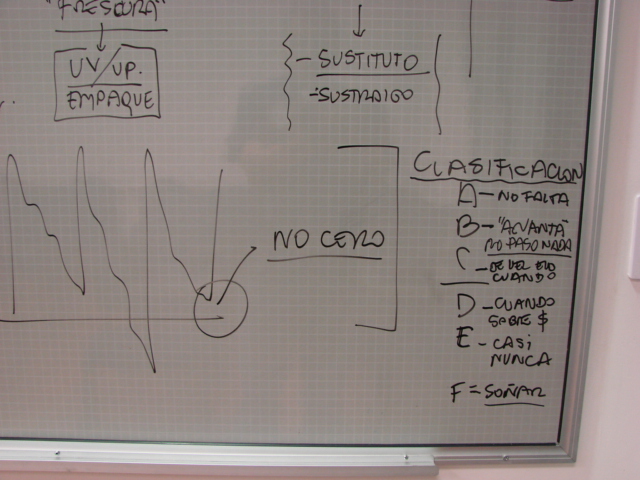 "FRESCURA"
UV/UP.
EMPAQUE
- SUSTITUTO
- SUSTRAIGO
NO CERO
CLASIFICACION
A - NO FALTA
B - "AGUANTA"
NO PASO NADA
C - DE VEZ EN
CUANDO
D - CUANDO
SOBRE $
E - CASI
NUNCA
F = SOÑAR